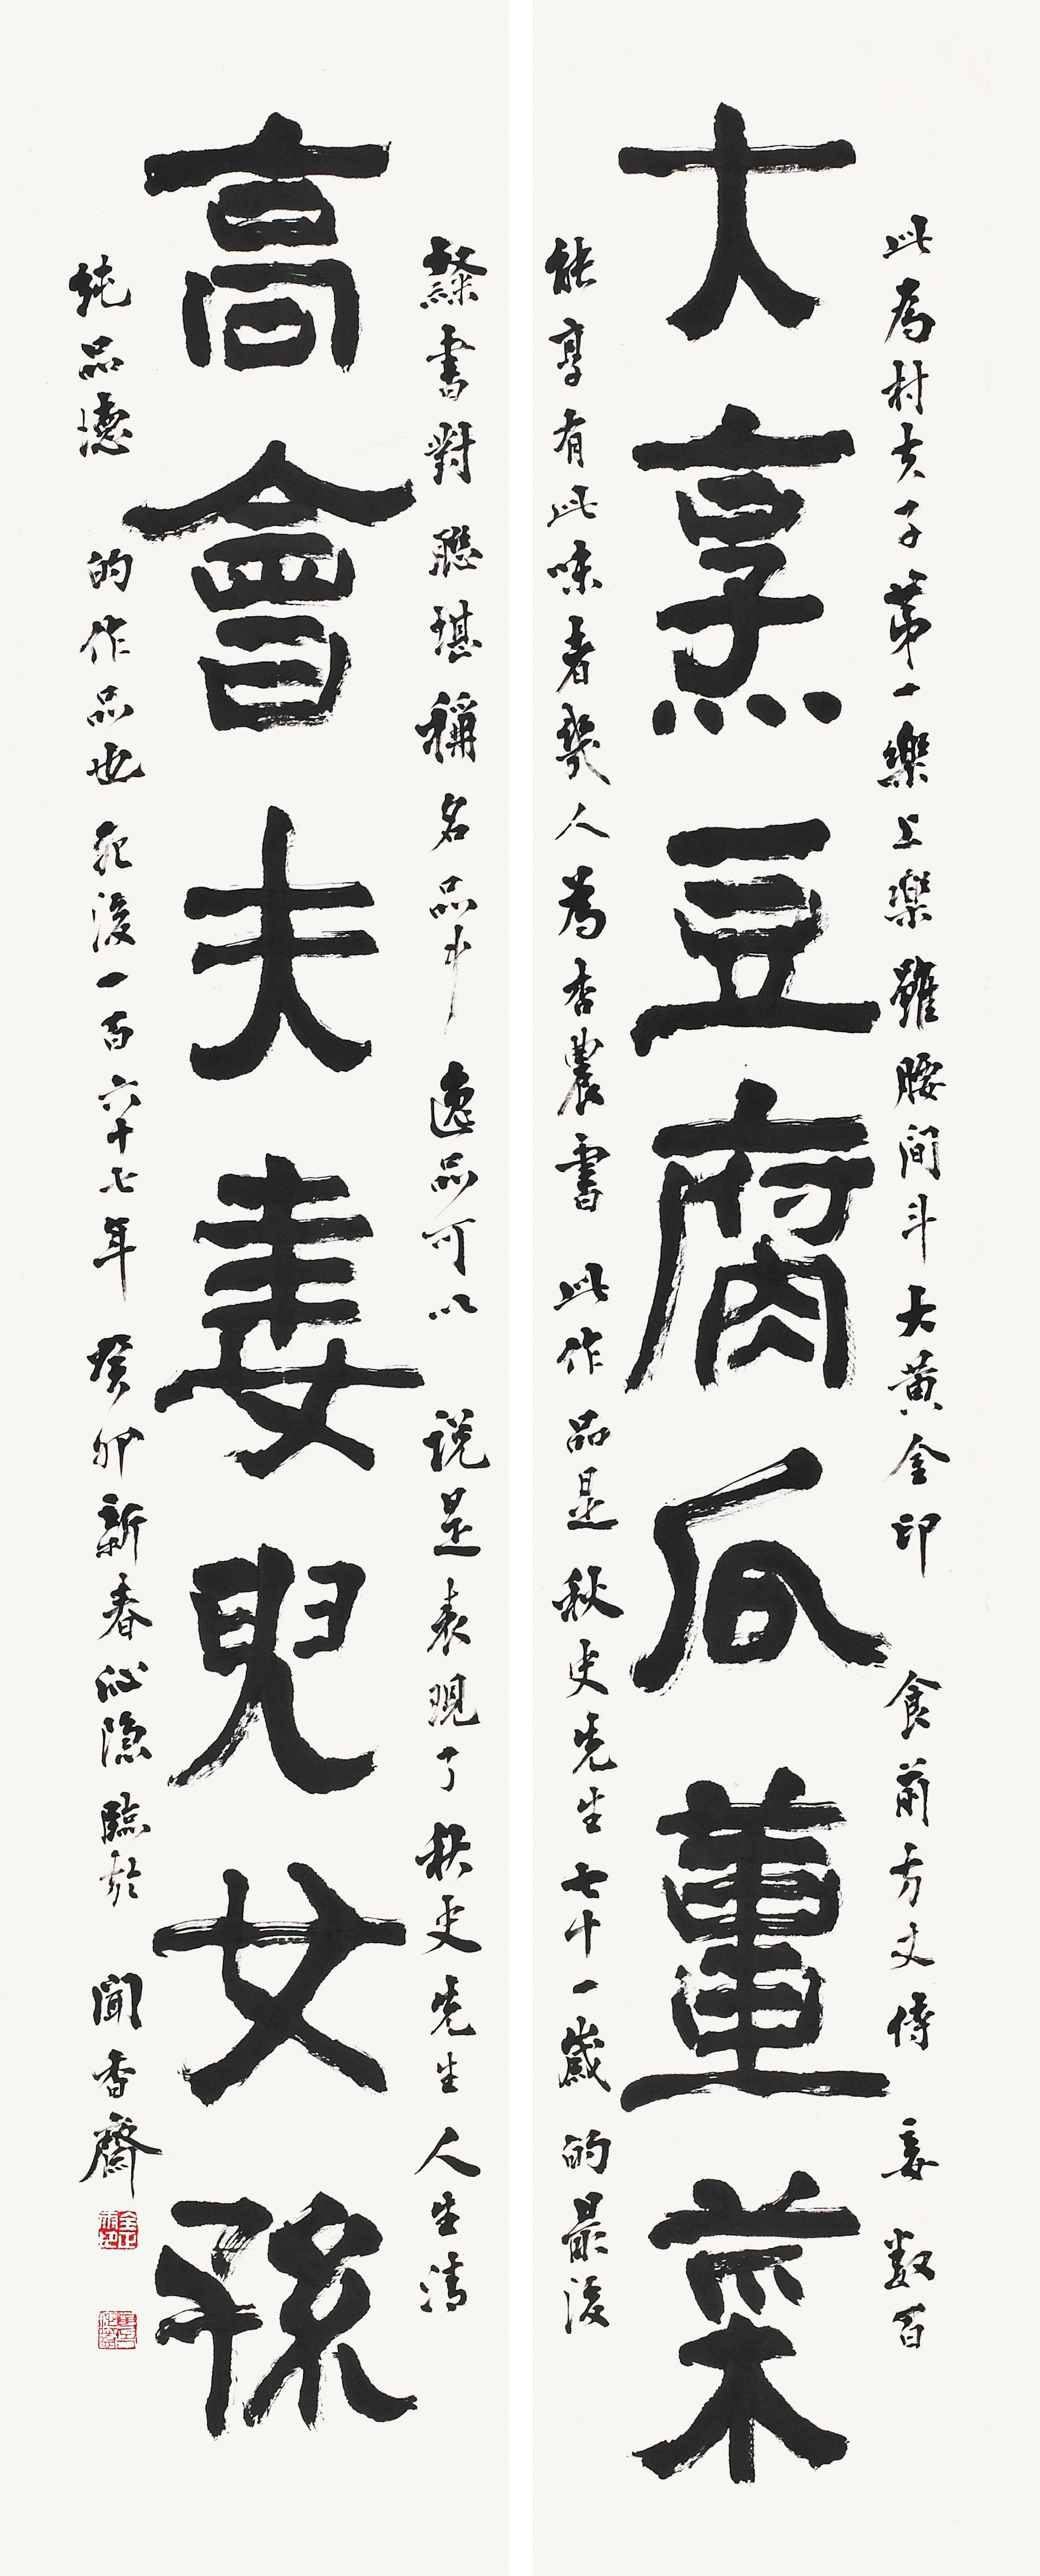 此為村夫子第一樂上樂雖腰间斗大黃金印 食前方丈侍妾数百
大烹豆腐瓜薑菜
能享有此味者幾人為杏農書 此作品是秋史先生七十一歲的最後
隸書對聯堪稱名品中逸品可以 说是表現了秋史先生人生清
高會夫妻兒女孫
純品德 的作品也 死後一百六十七年 癸卯新春沁隐臨於 聞香齋